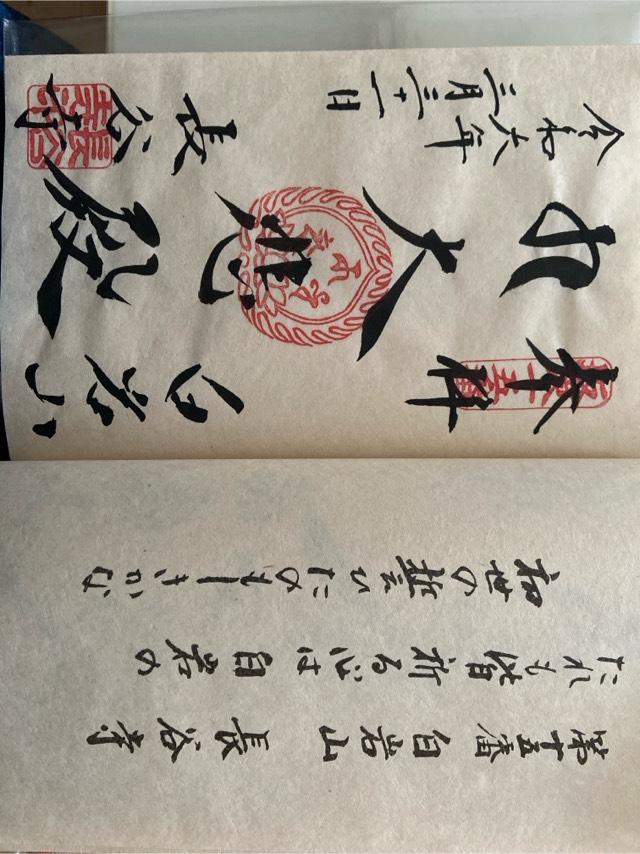 第十五番 白岩山 長谷寺
たれも皆祈る心は白岩の
初世の誓ひたのもしきかな
奉拝 白岩山
大悲殿
令和六年三月三十一日 長谷寺